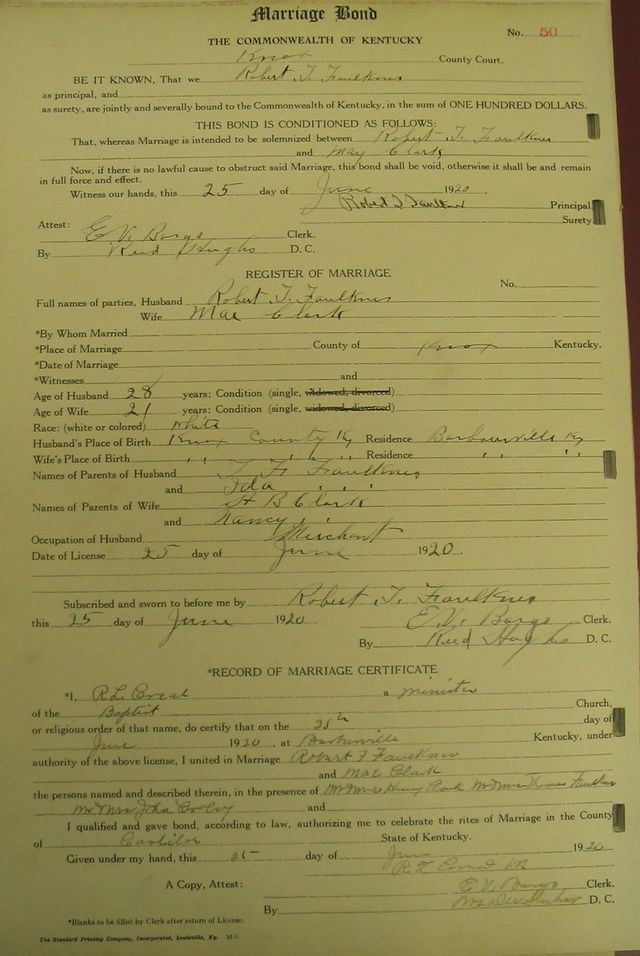 Marriage Bond
No. 50
THE COMMONWEALTH OF KENTUCKY
Knox County Court.
BE IT KNOWN, That we Robert T. Faulkner
as principal, and
as surety, are jointly and severally bound to the Commonwealth of Kentucky, in the sum of ONE HUNDRED DOLLARS.
THIS BOND IS CONDITIONED AS FOLLOWS:
That, whereas Marriage is intended to be solemnized between Robert T. Faulkner
and May Clark
Now, if there is no lawful cause to obstruct said Marriage, this bond shall be void, otherwise it shall be and remain
in full force and effect.
Witness our hands, this 25 day of June 1920.
Robert T Faulkner Principal
Surety
Attest:
E V. Bargo Clerk.
By Reed Hughs D. C.
REGISTER OF MARRIAGE
No.
Full names of parties, Husband Robert T. Faulkner
Wife Mae Clark
*By Whom Married
*Place of Marriage County of Knox Kentucky.
*Date of Marriage
*Witnesses and
Age of Husband 28 years; Condition (single, widowed, divorced)
Age of Wife 21 years; Condition (single, widowed, divorced)
Race: (white or colored) White
Husband's Place of Birth Knox County Ky Residence Barbourville Ky
Wife's Place of Birth " " " Residence " "
Names of Parents of Husband Faulkner
and Ida " "
Names of Parents of Wife H B Clark
and Nancy "
Occupation of Husband Merchant
Date of License 25 day of June 1920.
Subscribed and sworn to before me by Robert T. Faulkner
this 25 day of June 1920 E. V. Bargo Clerk.
By Reed Hughs D. C.
*RECORD OF MARRIAGE CERTIFICATE
*I, R L Creal a Minister
of the Baptist Church,
or religious order of that name, do certify that on the 25th day of
June 1920, at Barbourville Kentucky, under
authority of the above license, I united in Marriage Robert F Faulkner
and Mae Clark
the persons named and described therein, in the presence of Mr Mrs Mr Mrs Thomas Faulkner
Mr Mrs John and
I qualified and gave bond, according to law, authorizing me to celebrate the rites of Marriage in the County
of State of Kentucky.
Given under my hand, this 25 day of June 1920
R L Creal M
A Copy, Attest: E V. Bargo Clerk.
By D. C.
*Blanks to be filled by Clerk after return of License.
The Standard Printing Company, Incorporated, Louisville, Ky.